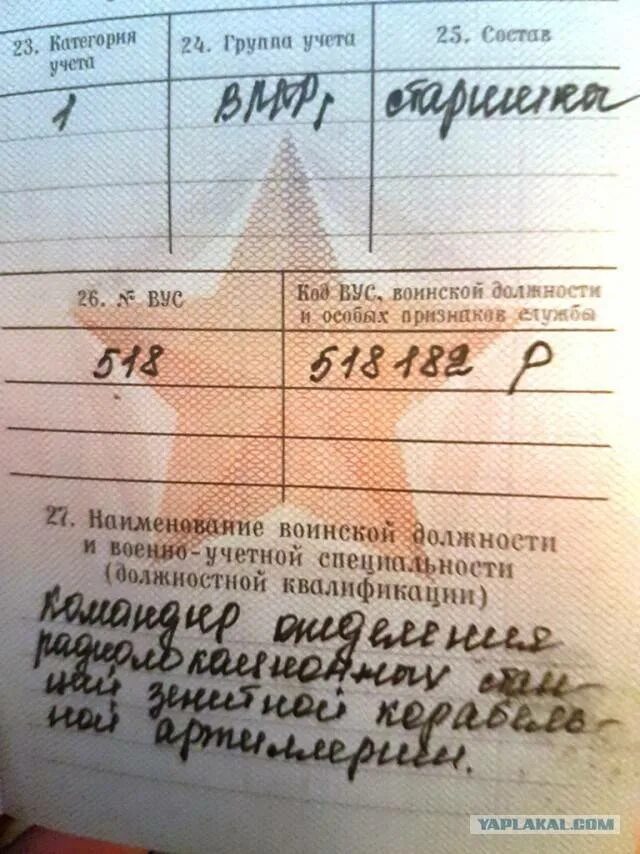 23. Категория учета
24. Группа учета
25. Состав
1
старшины
26. № ВУС
Код ВУС, воинской должности и особых признаков службы
518
518182 Р
27. Наименование воинской должности
и военно-учетной специальности
(должностной квалификации)
Командир отделения
радиолокационных стан-
ций зенитной корабель-
ной артиллерии.
YAPLAKAL.COM